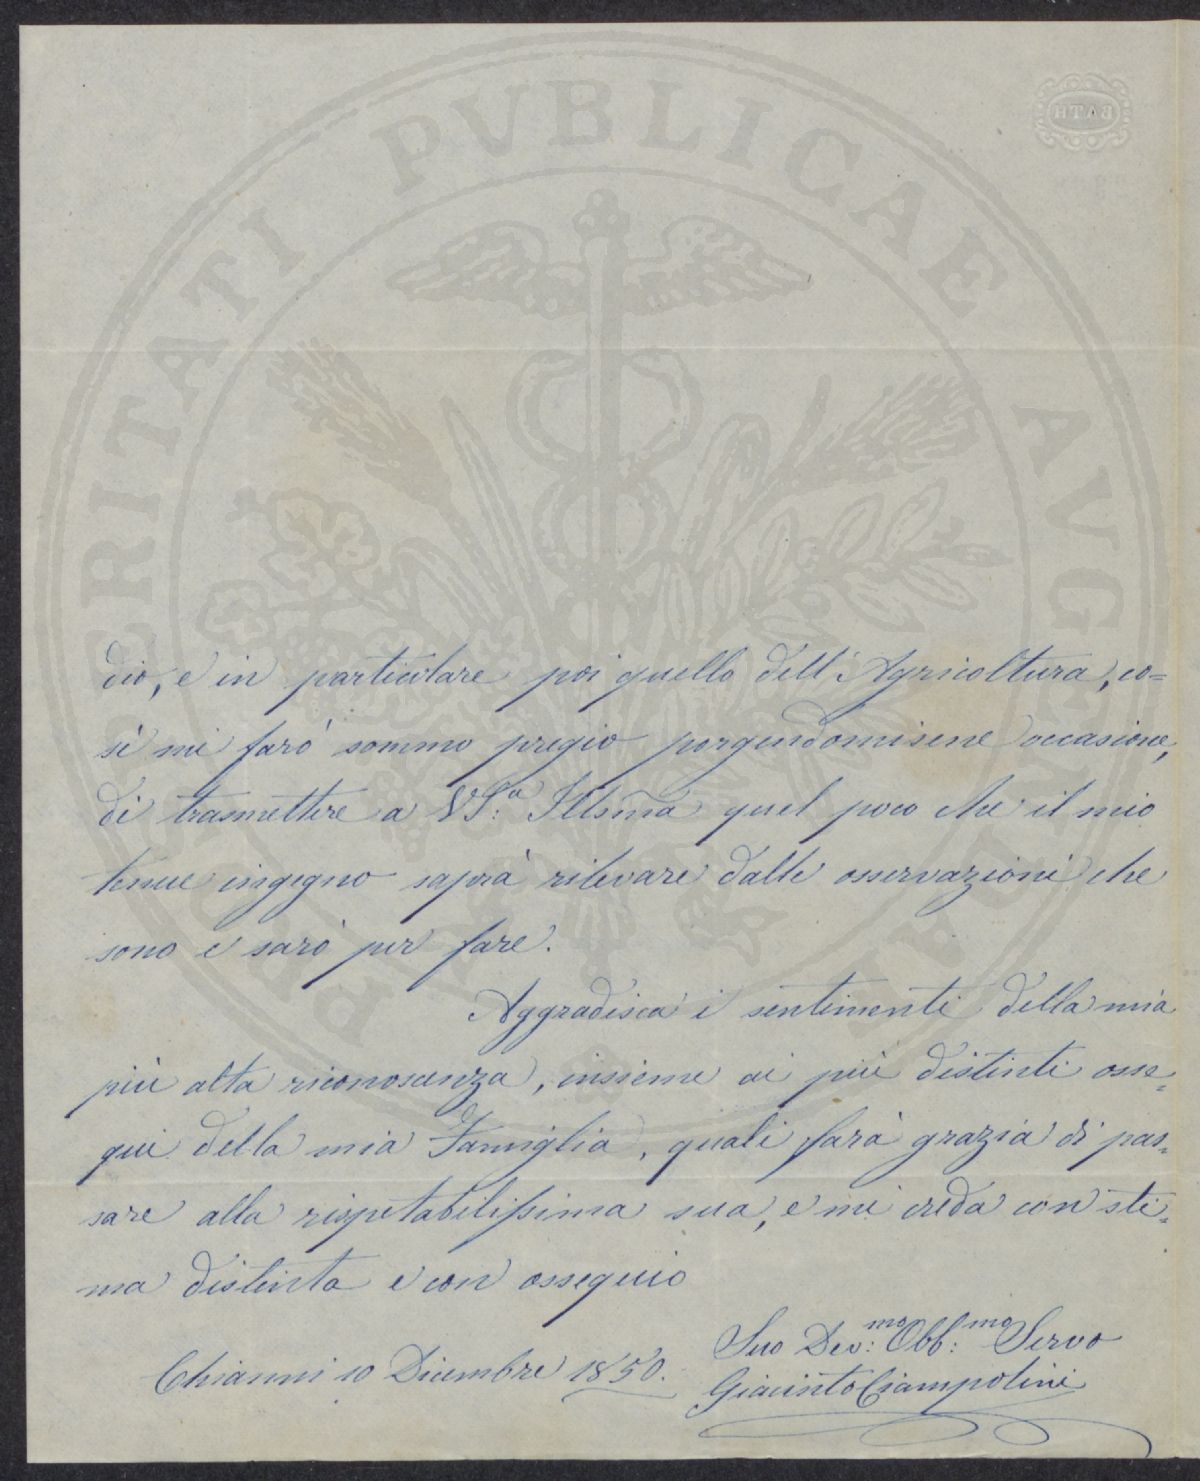 BATH
PROSPERITATI PVBLICAE AVGENDAE
dio, e in particolare poi quello dell'Agricoltura, co=
sì mi farò sommo pregio porgendomisene occasione,
di trasmettere a VS:a Illsma quel poco che il mio
tenue ingegno saprà rilevare dalle osservazioni che
sono e sarò per fare.
Aggradisca i sentimenti della mia
più alta riconoscenza, insieme ai più distinti osse=
qui della mia Famiglia, quali farà grazia di pas=
sare alla rispettabilissima sua, e mi creda con sti=
ma distinta e con ossequio
Suo Dev:mo Obb:mo Servo
Chianni 10 Dicembre 1850.
Giacinto Ciampolini